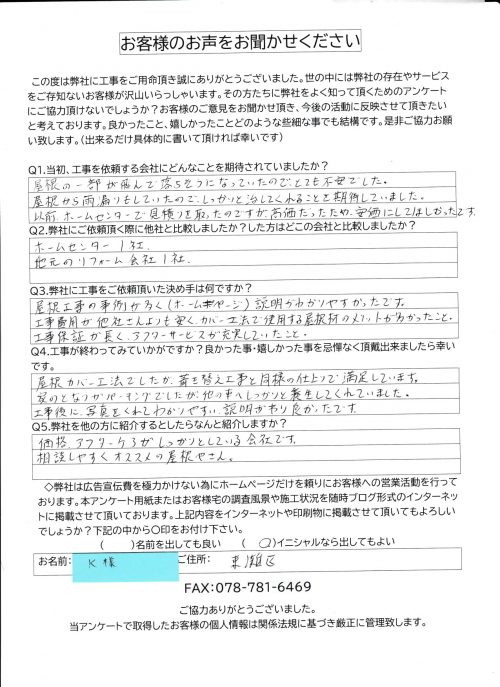 お客様のお声をお聞かせください
この度は弊社に工事をご用命頂き誠にありがとうございました。世の中には弊社の存在やサービス
をご存知ないお客様が沢山いらっしゃいます。その方たちに弊社をよく知って頂くためのアンケート
にご協力頂けないでしょうか？お客様のご意見をお聞かせ頂き、今後の活動に反映させて頂きたい
と考えております。良かったこと、嬉しかったことどのような些細な事でも結構です。是非ご協力お願
い致します。（出来るだけ具体的に書いて頂ければ幸いです）
Q1.当初、工事を依頼する会社にどんなことを期待されていましたか？
屋根の一部が飛んで落ちそうになっていたのでとても不安でした。
屋根から雨漏りもしていたので、しっかと治してくれることを期待していました。
以前、ホームセンターで見積りを取ったのですが高価だったため、安価にしてほしかったです
Q2.弊社にご依頼頂く際に他社と比較しましたか？した方はどこの会社と比較しましたか？
ホームセンター1社
地元のリフォーム会社1社.
Q3.弊社に工事をご依頼頂いた決め手は何ですか？
屋根工事の事例が多く（ホームページ）説明がわかりやすかったです。
工事費用が他社さんよりも安く、カバー工法で使用する屋根材のメリットが多かったこと。
工事保証が長く、アフターサービスが充実していたこと。
Q4.工事が終わってみていかがですか？良かった事・嬉しかった事を忌憚なく頂戴出来ましたら幸い
です。
屋根カバー工法でしたが、葺き替え工事と同様の仕上りで満足しています。
家のとなりがパーキングでしたが、他の車へしっかりと養生してくれていました。
工事後に、写真をくれてわかりやすい説明があり良かったです
Q5.弊社を他の方に紹介するとしたらなんと紹介しますか？
価格、アフターケアがしっかりとしている会社です.
相談しやすくオススメの屋根やさん.
◇弊社は広告宣伝費を極力かけない為にホームページだけを頼りにお客様への営業活動を行って
おります。本アンケート用紙またはお客様宅の調査風景や施工状況を随時ブログ形式のインターネッ
トに掲載させて頂いております。上記内容をインターネットや印刷物に掲載させて頂いてもよろしい
でしょうか？下記の中から〇印をお付け下さい。
（　）名前を出しても良い　（〇）イニシャルなら出してもよい
お名前： K様　ご住所： 東灘区
FAX：078-781-6469
ご協力ありがとうございました。
当アンケートで取得したお客様の個人情報は関係法規に基づき厳正に管理致します。